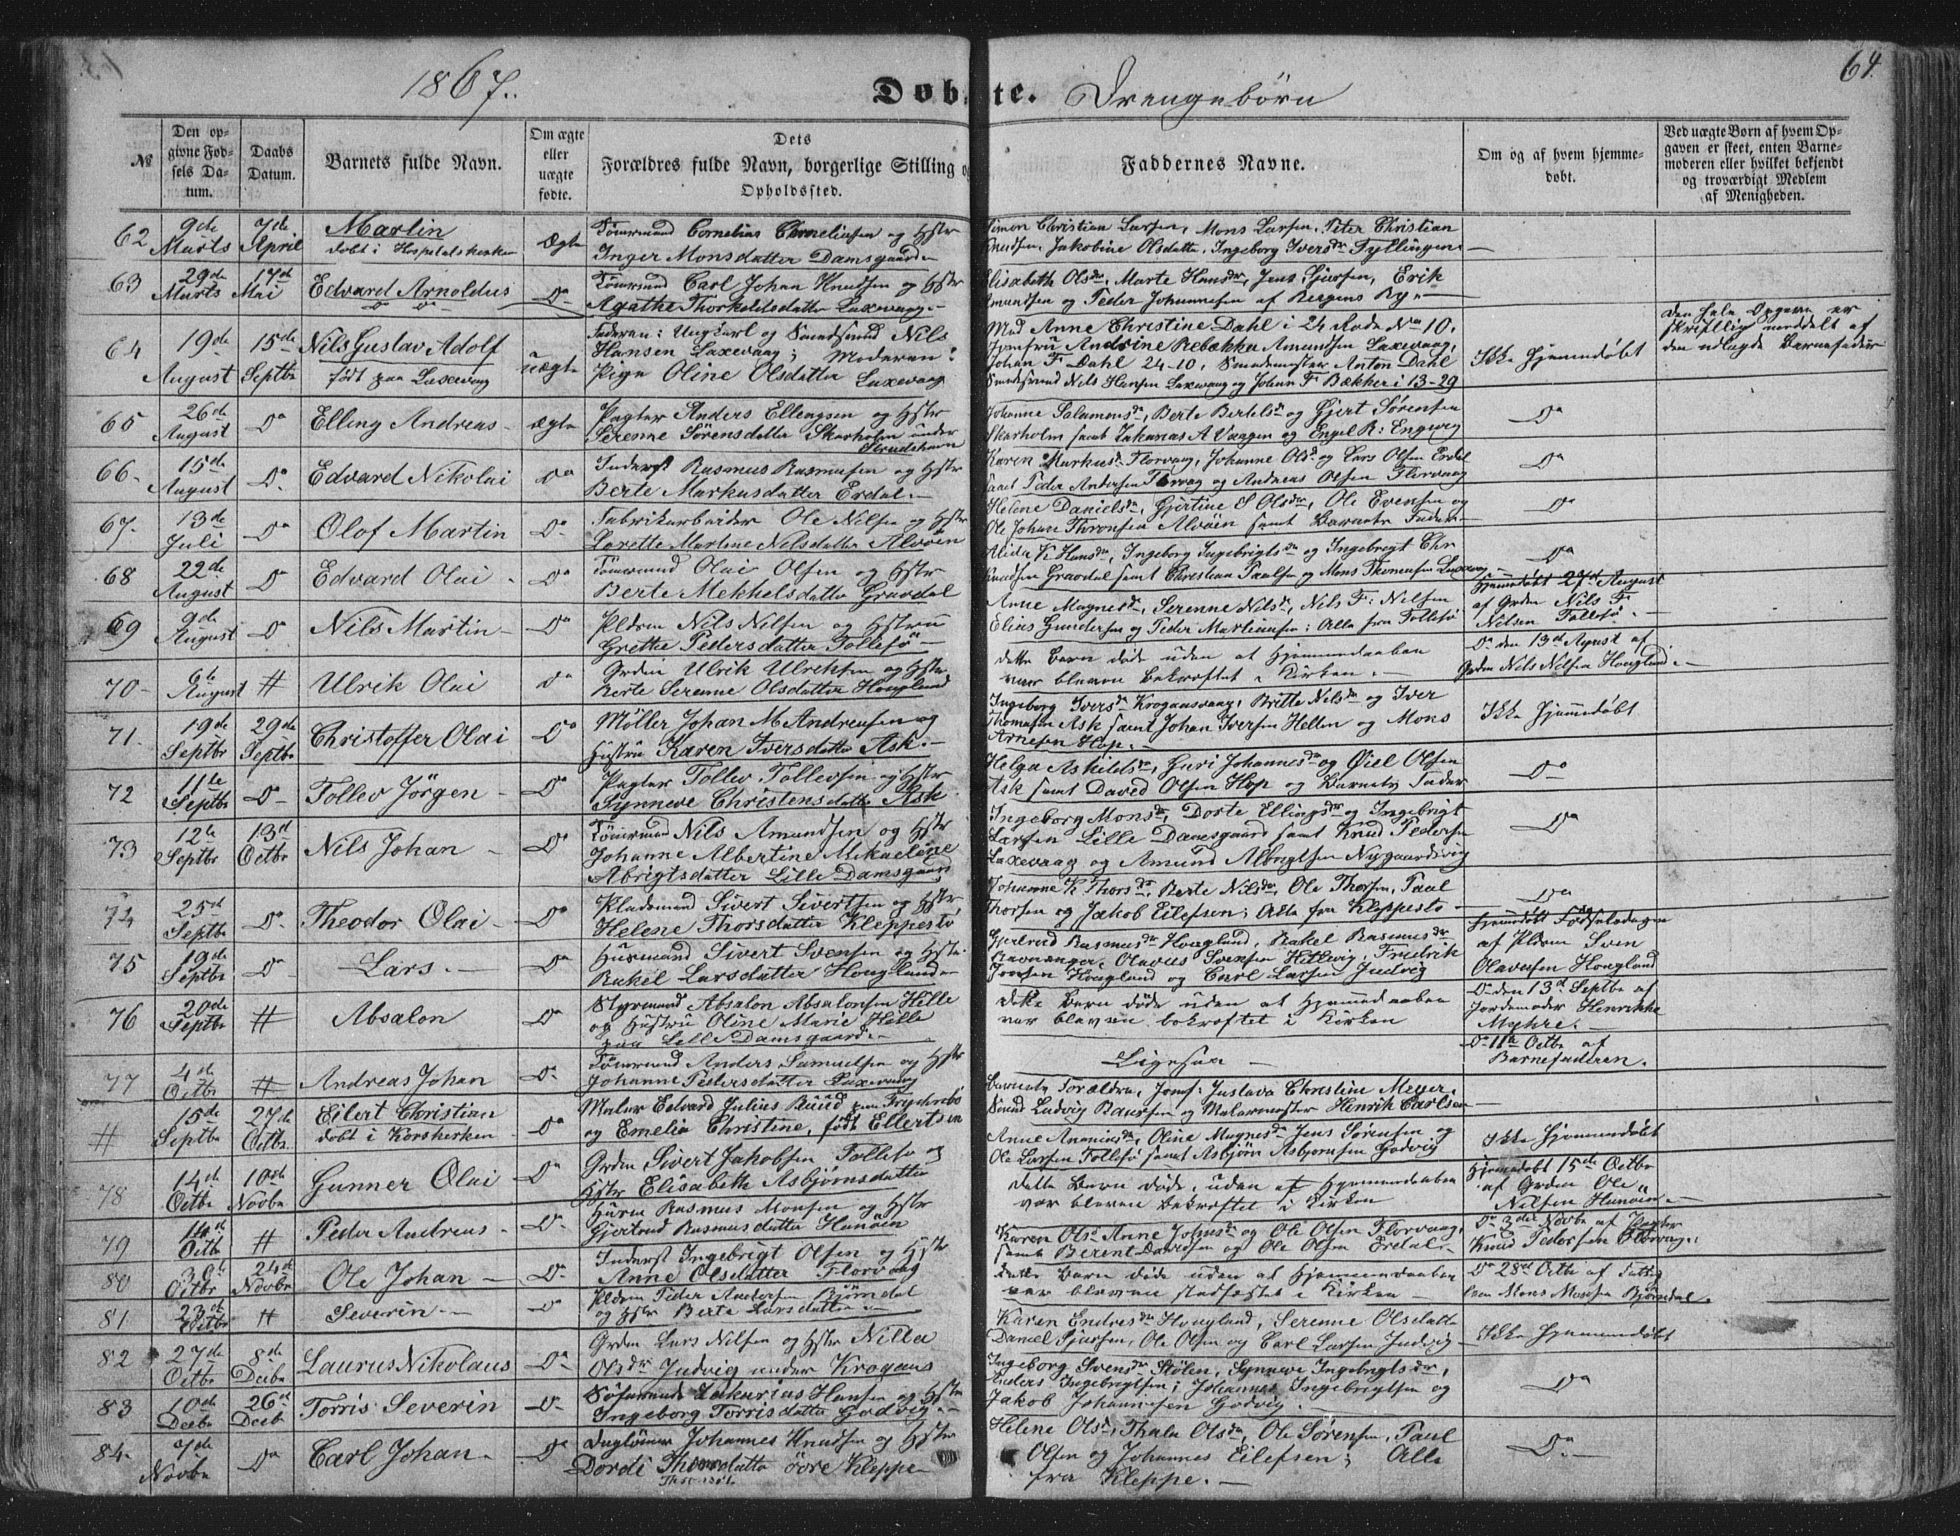 1867.
Døbte. Drengebørn
64.
№
Den opgivne Fødsels Datum.
Daabs Datum.
Barnets fulde Navn.
Om ægte eller uægte fødte.
Dets Forældres fulde Navn, borgerlige Stilling og Opholdssted.
Faddernes Navne.
Om og af hvem hjemmedøbt.
Ved uægte Børn af hvem Opgaven er skeet, enten Barnemoderen eller hvilket bekjendt og troværdigt Medlem af Menigheden.
62 9de Marts 7de April Martin døbt i Hospitalskirken Ægte Tömrmand Cornelius Corneliusen og Hstr
Inger Monsdatter Damsgaard
Simon Christian Larsen, Mons Larsen, Peter Christian
Knudsen, Jakobine Olsdatter, Ingeborg Ivers Dr Fyllingen
63 29de Marts 17de Mai Edvard Arnoldus Do Tömrmand Carl Johan Knudsen og Hstr
Agathe Thorkeldsdatter Laxevaag
Elisabeth Ols Dr, Marte Hans Dr, Jens Sjursen, Erik
Amundsen og Peder Johannesen af Bergens By.
64 19de August 15de Septbr Nils Gustav Adolf født paa Laxevaag uægte Faderen: Ungkarl og Smedsvend Nils
Hansen Laxevaag; Moderen:
Pige Oline Olsdatter Laxevaag
Mad Anne Christine Dahl i 24 Rode No 10,
Jomfru Andrine Rebækka Amundsen Laxevaag,
Johan F. Dahl 24-10, Smedemester Anton Dahl
Smedsvend Nils Hansen Laxevaag og Johan F. Bækker i 13-29
Ikke Hjemmedøbt
Den hele Opgave er
skriftlig meddelt af
den udlagde Barnefader
65 26de August Do Elling Andreas Ægte Pagter Anders Ellengsen og Hstr
Serenne Sörensdatter Skarholm under
Strudshavn
Johanne Salamons Dr, Berte Bertels Dr og Gjert Sørensen
Skarholm samt Zakarias A Vaagen og Engel R: Engevig
Do
66 15de August Do Edvard Nikolai Do Inderst Rasmus Rasmusen og Hstr
Berte Markusdatter Erdal
Karen Markus Dr Florvaag, Johanne Ols Dr og Lars Olsen Erdal
samt Peder Andersen Florvaag og Andreas Olsen Florvaag
Do
67. 13de Juli Do Olaf Martin Do Fabrikarbeider Ole Nilsen og Hstr
Lorette Martine Nilsdatter Alvøen
Helene Daniels Dr, Gjertine S Ols Dr, Ole Evensen og
Ole Johan Thronsen Alvøen samt Barnets Fader.
Do
68 22de August Do Edvard Olai Do Tömrmand Olai Olsen og Hstr
Berte Mekkelsdatter Gravdal
Alida K Hans Dr, Ingeborg Ingebrigts Dr og Ingebregt Chr
Knudsen Gravdal samt Christian Paulsen og Mons Thomasen Laxevaag
Do
69 9de August Do Nils Martin Do Pldrm Nils Nilsen og Hstru
Grethe Pedersdatter Follesø
Anne Magnes Dr, Serenne Nils Dr, Nils F: Nilsen
Elias Gundersen og Peder Martinusen: Alle fra Follesø
Hjemmedøbt 27de August
af Grdm Nils F.
Nilsen Follesø
70 6te August # Ulrik Olai Do Grdm Ulrik Ulriksen og Hstr
Berte Serenne Olsdatter Hougland
dette Barn døde uden at Hjemmedaaben
var bleven bekræftet i Kirken.
Do den 13de August af
Grdm Nils Nilsen Hougland.
71. 19de Septbr 29de Septbr Christoffer Olai Do Møller Johan M Andreasen og
Hustru Karen Iversdatter Ask.
Ingeborg Ivers Dr Krogaasvaag, Britte Nils Dr og Iver
Thomasen Ask samt Johan Iversen Hellen og Mons
Arnesen Hop.
Ikke Hjemmedøbt
72 11te Septbr Do Tollev Jörgen Do Pagter Tollev Tollevsen og Hstr
Synneve Christensdatter Ask
Helga Askilds Dr, Guri Johannes Dr og Øiel Olsen
Ask samt David Olsen Hop og Barnets Fader
Do
73 12te Septbr 13de Octbr Nils Johan Do Tömrmand Nils Amundsen og Hstr
Johanne Albertine Mikaeline
Abrigtsdatter Lille Damsgaard
Ingeborg Mons Dr, Dorte Ellings Dr og Ingebrigt
Larsen Lille Damsgaard samt Knud Pedersen
Laxevaag og Amund Albrigtsen Nygaardsvig
Do
74 25de Septbr Do Theodor Olai Do Pladsmand Sivert Sivertsen og Hstr
Helene Thorsdatter Kleppestø
Johanne K Thors Dr, Berte Nils Dr, Ole Thorsen, Paul
Thorsen og Jakob Eilefsen; Alle fra Kleppestø
Do
75 19de Septbr Do Lars Do Husmand Sivert Svensen og Hstr
Rakel Larsdatter Hougland
Gjertrud Rasmus Dr Hougland, Rakel Rasmus Dr
Ravnanger, Olavus Svensen Hillevig, Fredrik
Hougland og Carl Larsen Judvig
Hjemmedøbt Fødselsdagen
af Pldrm Sven
Olavesen Hougland
76 20de Septbr # Absalon Do Styrmand Absalon Absalonsen Hille
og Hustru Oline Marie Hille
paa Lille Damsgaard
dette Barn døde uden at Hjemmedaaben
var bleven bekræftet i Kirken
Do den 13de Septbr af
Jordemoder Henrikke
Myhre.
77 4de Octbr # Andreas Johan Do Tömrmand Anders Samuelsen og Hstr
Johanne Pedersdatter Laxevaag
Ligesaa
Do 11te Octbr af
Barnefaderen.
# 15de Septbr 27de Octbr Eilert Christian døbt i Korskirken Do Maler Edvard Julius Ruud paa Frydenbø
og Emelia Christine, født Ellertsen
Barnets Forældre, Jomf: Gustava Christine Meyer,
Smed Ludvig Baursen og Malermester Henrik Carlsen
78 14de Octbr 10de Novbr Gunner Olai Do Grdm Sivert Jakobsen Follesø og
Hstr Elisabeth Asbjørnsdatter
Anne Ananias Dr, Oline Magnes Dr, Jens Sørensen og
Ole Larsen Follesø samt Asbjørn Asbjørnsen Godvig
Ikke Hjemmedøbt
79 14de Octbr # Peder Andreas Do Husm Rasmus Monsen og Hstr
Gjertrud Rasmusdatter Hanøen
Dette Barn døde, uden at Hjemmedaaben
var bleven bekræftet i Kirken
Hjemmedøbt 15de Octbr
af Grdm Ole
Nilsen Hanøen
80 Octbr 24de Novbr Ole Johan Do Inderst Ingebrigt Olsen og Hstr
Anne Olsdatter Florvaag
Karen Ols Dr Anne Johns Dr og Ole Olsen Florvaag,
samt Berent Davidsen og Ole Olsen Erdal
Do 3die Novbr af Pagter
Knud Pedersen Florvaag.
81 23de Octbr # Severin Do Pldrm Peder Andersen Bjørndal
og Hstr Berte Larsdatter
Dette Barn døde uden at Hjemmedaaben
var bleven stadfæstet i Kirken
Do 28de Octbr af Fattig
lem Mons Monsen Bjørndal.
82 27de Octbr 8de Decbr Laurus Nikolaus Do Grdm Lars Nilsen og Hstr Nilla
Ols Dr Judvig under Krogaas
Karen Endres Dr Hougland, Serenne Olsdatter
Daniel Sjursen, Ole Olsen og Carl Larsen Judvig
Ikke Hjemmedøbt
83 10de Decbr 26de Decbr Torris Severin Do Husmand Zakarias Hansen og Hstr
Ingeborg Torrisdatter Godvig
Ingeborg Svens Dr Stølen, Synneve Ingebrigts Dr,
Anders Ingebrigtsen, Johannes Ingebrigtsen og
Jakob Johannesen Godvig.
Do
84 7de Novbr Do Carl Johan Do Dagløner Johannes Knudsen og Hstr
Dordi Thorsdatter övre Kleppe
Helene Ols Dr, Thala Ols Dr, Ole Sørensen, Paul
Olsen og Johannes Eilefsen; Alle
fra Kleppe.
Do.